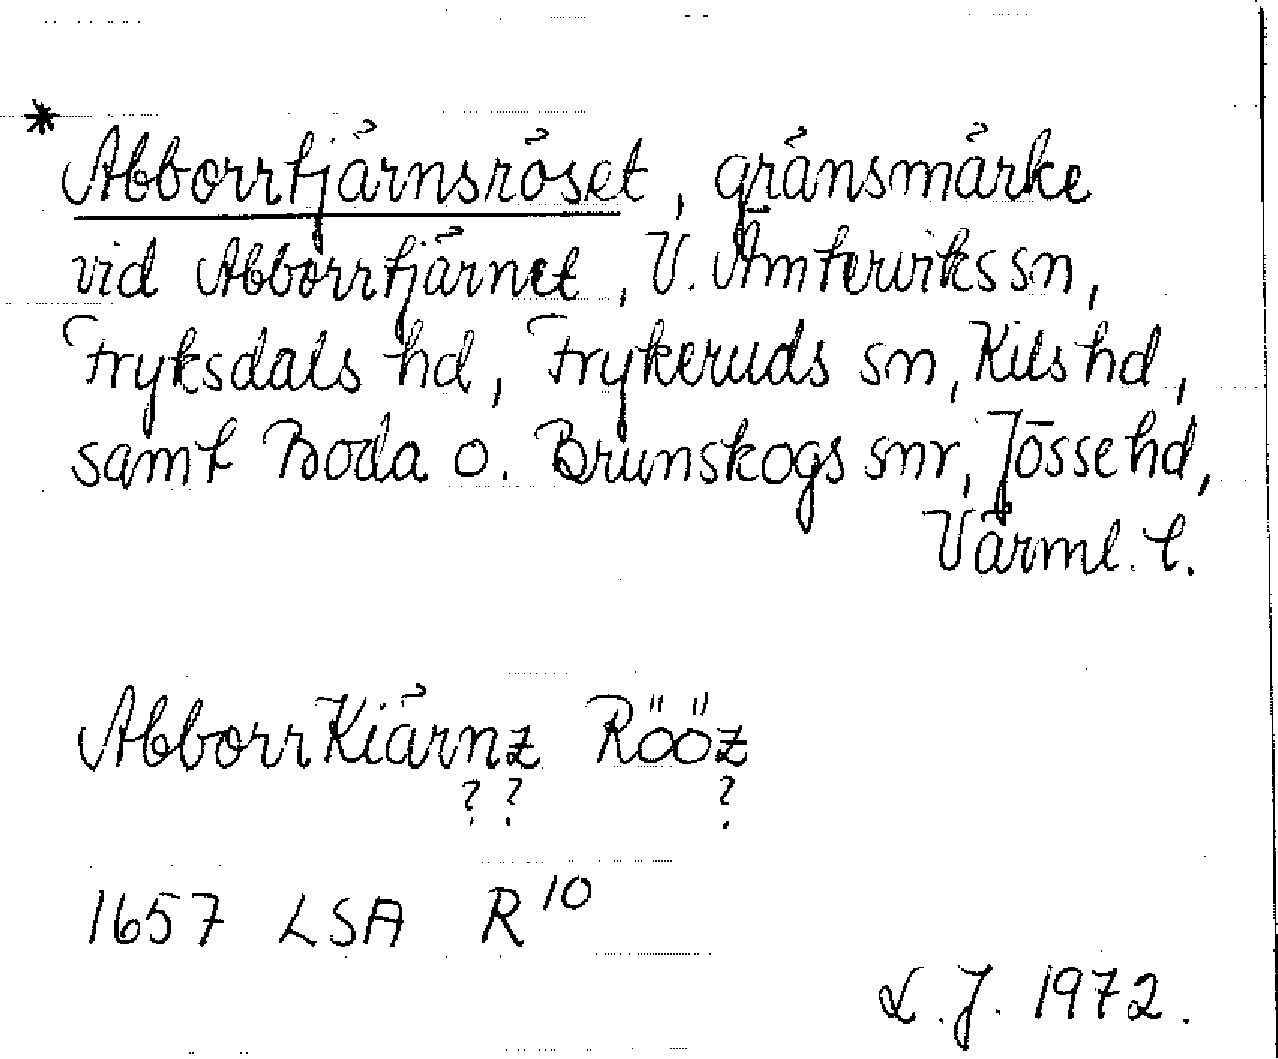 * Abborrtjärnsröset, gränsmärke
vid Abborrtjärnet, V. Ämterviks sn,
Fryksdals hd, Frykeruds sn, Kils hd,
samt Boda o. Brunskogs snr, Jösse hd,
Värml. l.
AbborrKiärnz Rööz
? ? ?
1657 LSA R 10
L. J. 1972.